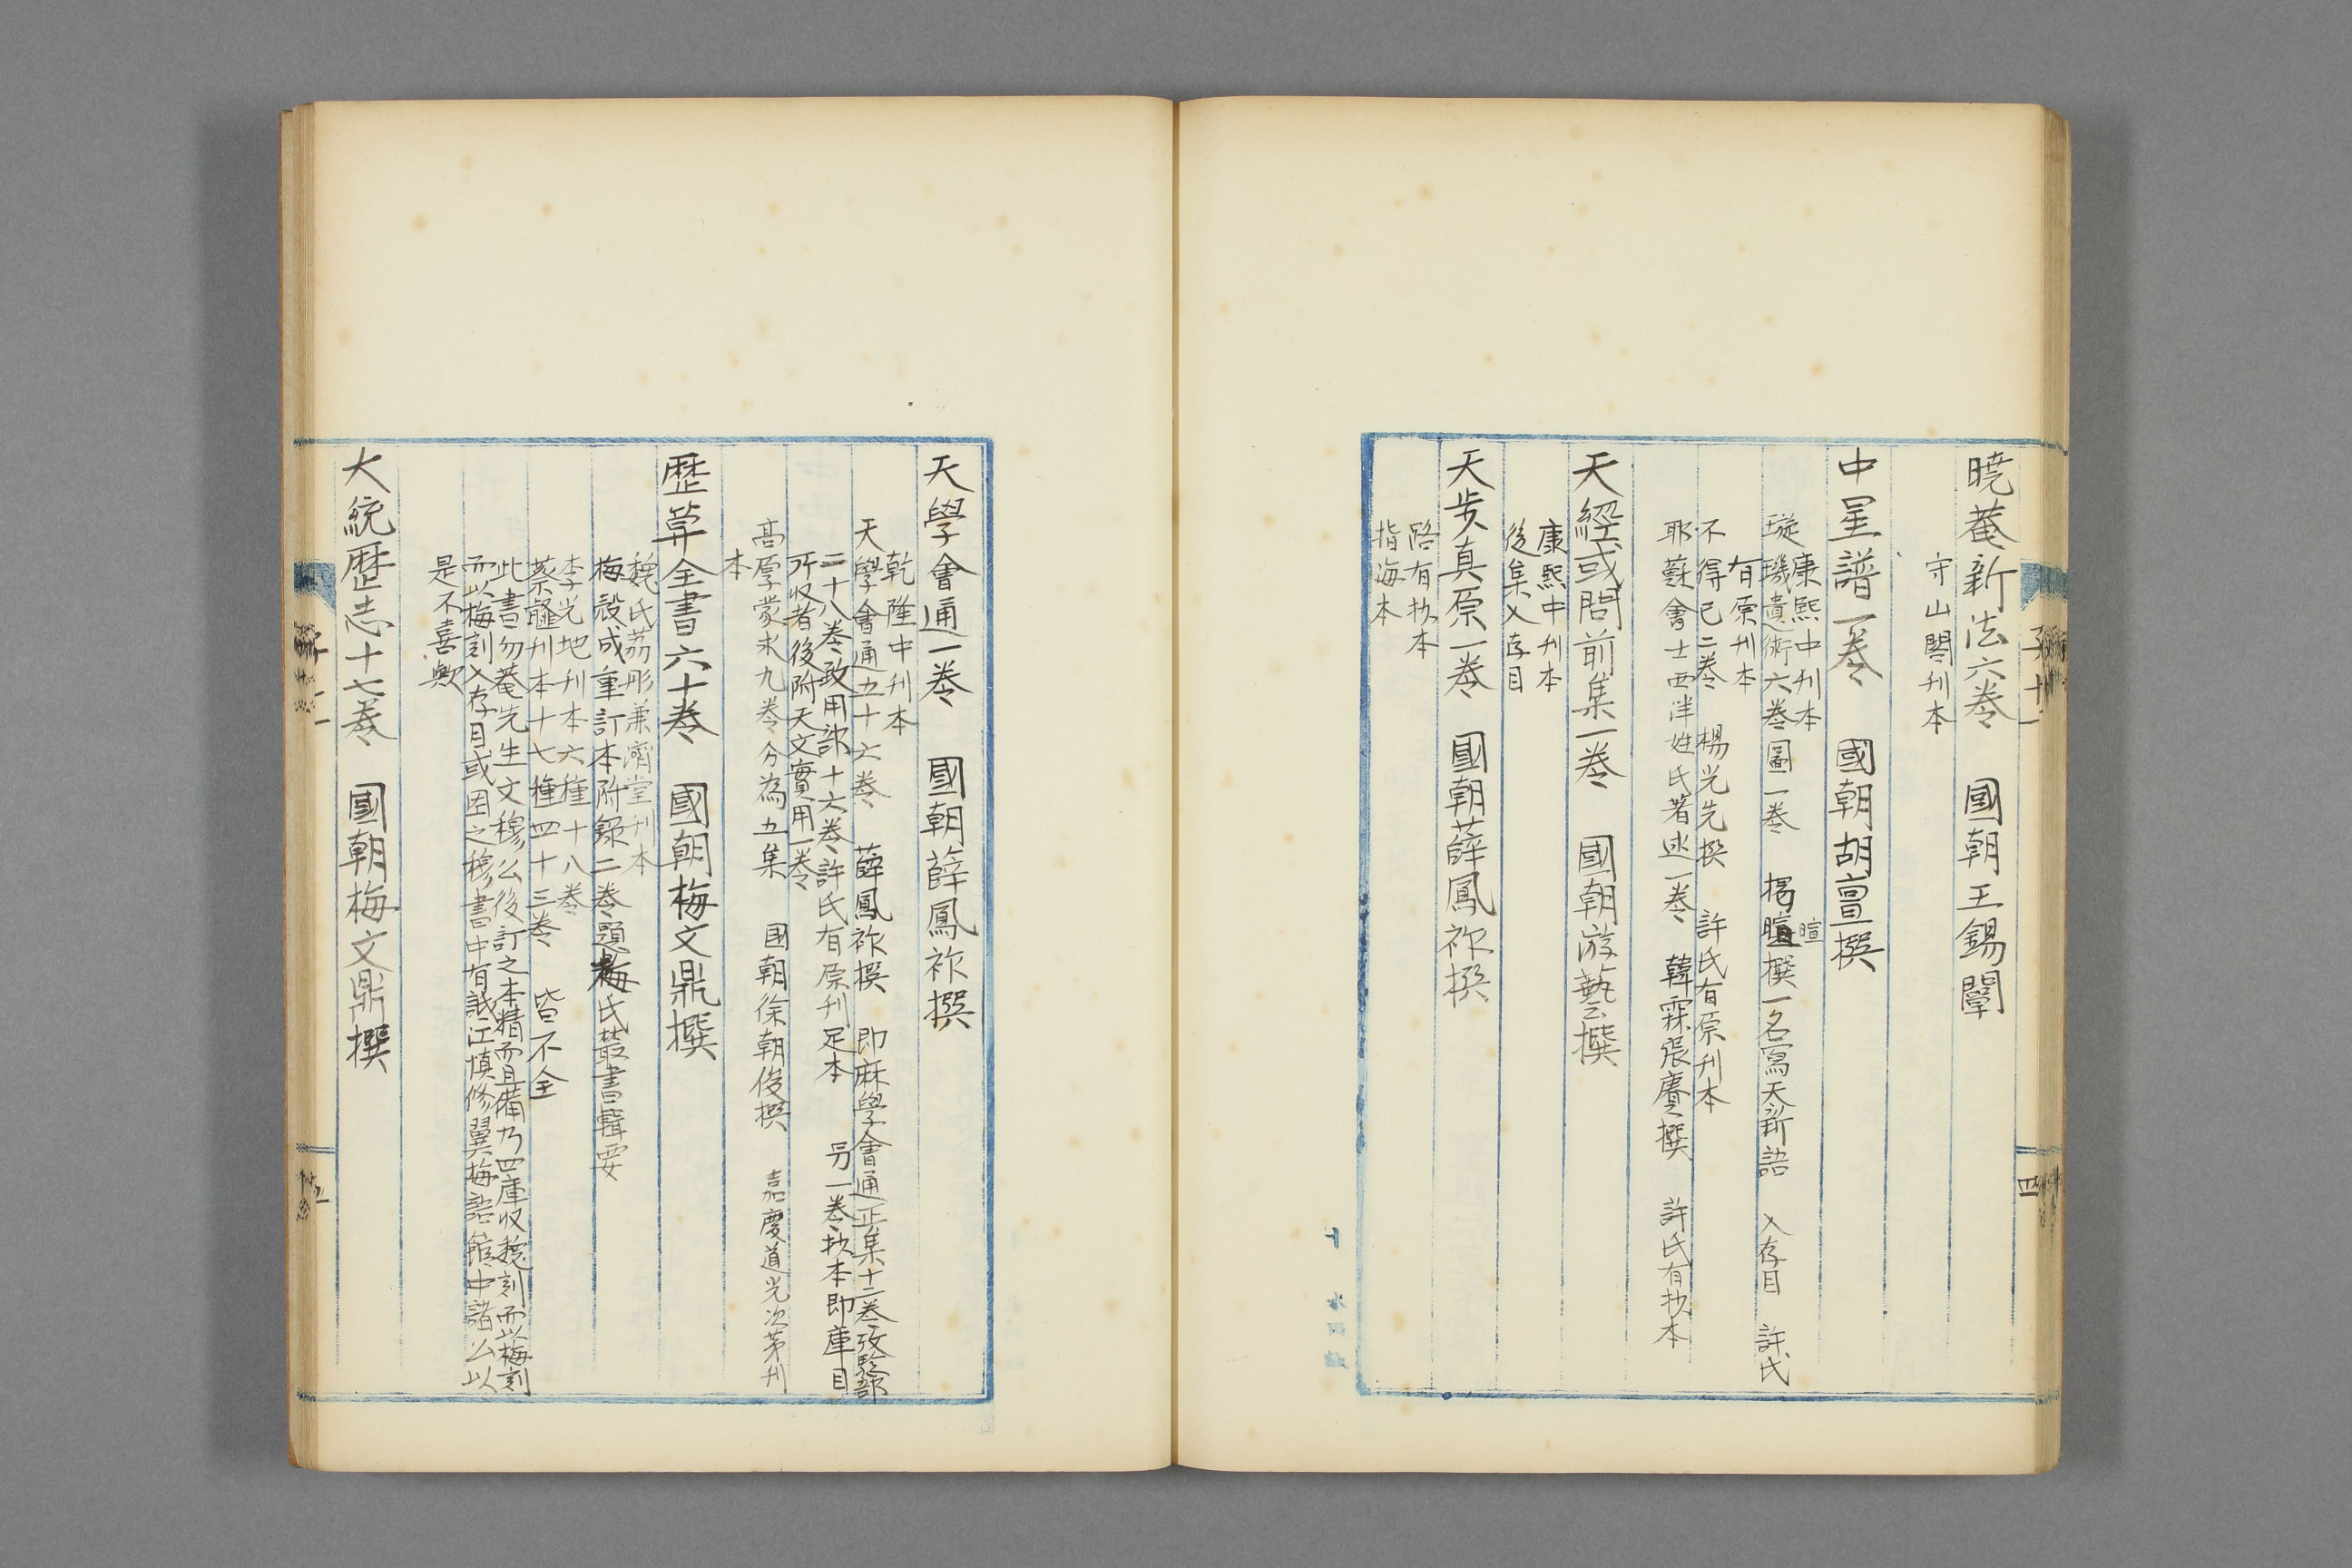 曉菴新法六卷　國朝王錫闡
守山閣刊本
中星譜一卷　國朝胡亶撰
康熙中刊本
璇璣遺術六卷圖一卷　揭暄撰一名寫天新語　入存目　許氏
暄
有原刊本
不得已二卷　楊光先撰　許氏有原刊本
耶蘇會士西洋姓氏著述一卷　韓霖張賡撰　許氏有抄本
天經或問前集一卷　國朝游藝撰
康熙中刊本
後集入存目
天步真原一卷　國朝薛鳳祚撰
路有抄本
指海本
子十一
四
天學會通一卷　國朝薛鳳祚撰
乾隆中刊本
天學會通五十六卷　薛鳳祚撰　即麻學會通正集十二卷攷驗部
二十八卷致用部十六卷許氏有原刊足本　另一卷抄本即庫目
所收者後附天文實用一卷
高厚蒙求九卷分為五集　國朝徐朝俊撰　嘉慶道光次第刊
本
歷筭全書六十卷　國朝梅文鼎撰
魏氏荔彤兼濟堂刊本
梅瑴成重訂本附錄二卷題梅氏叢書輯要
李光地刊本六種十八卷
蔡壡刊本十七種四十三卷　皆不全
此書勿菴先生文穆公後訂之本精而且備乃四庫收魏刻而以梅刻
而以梅刻入存目或因之穆書中有誡江慎修翼梅語館中諸公以
是不喜歟
大統歷志十七卷　國朝梅文鼎撰
五